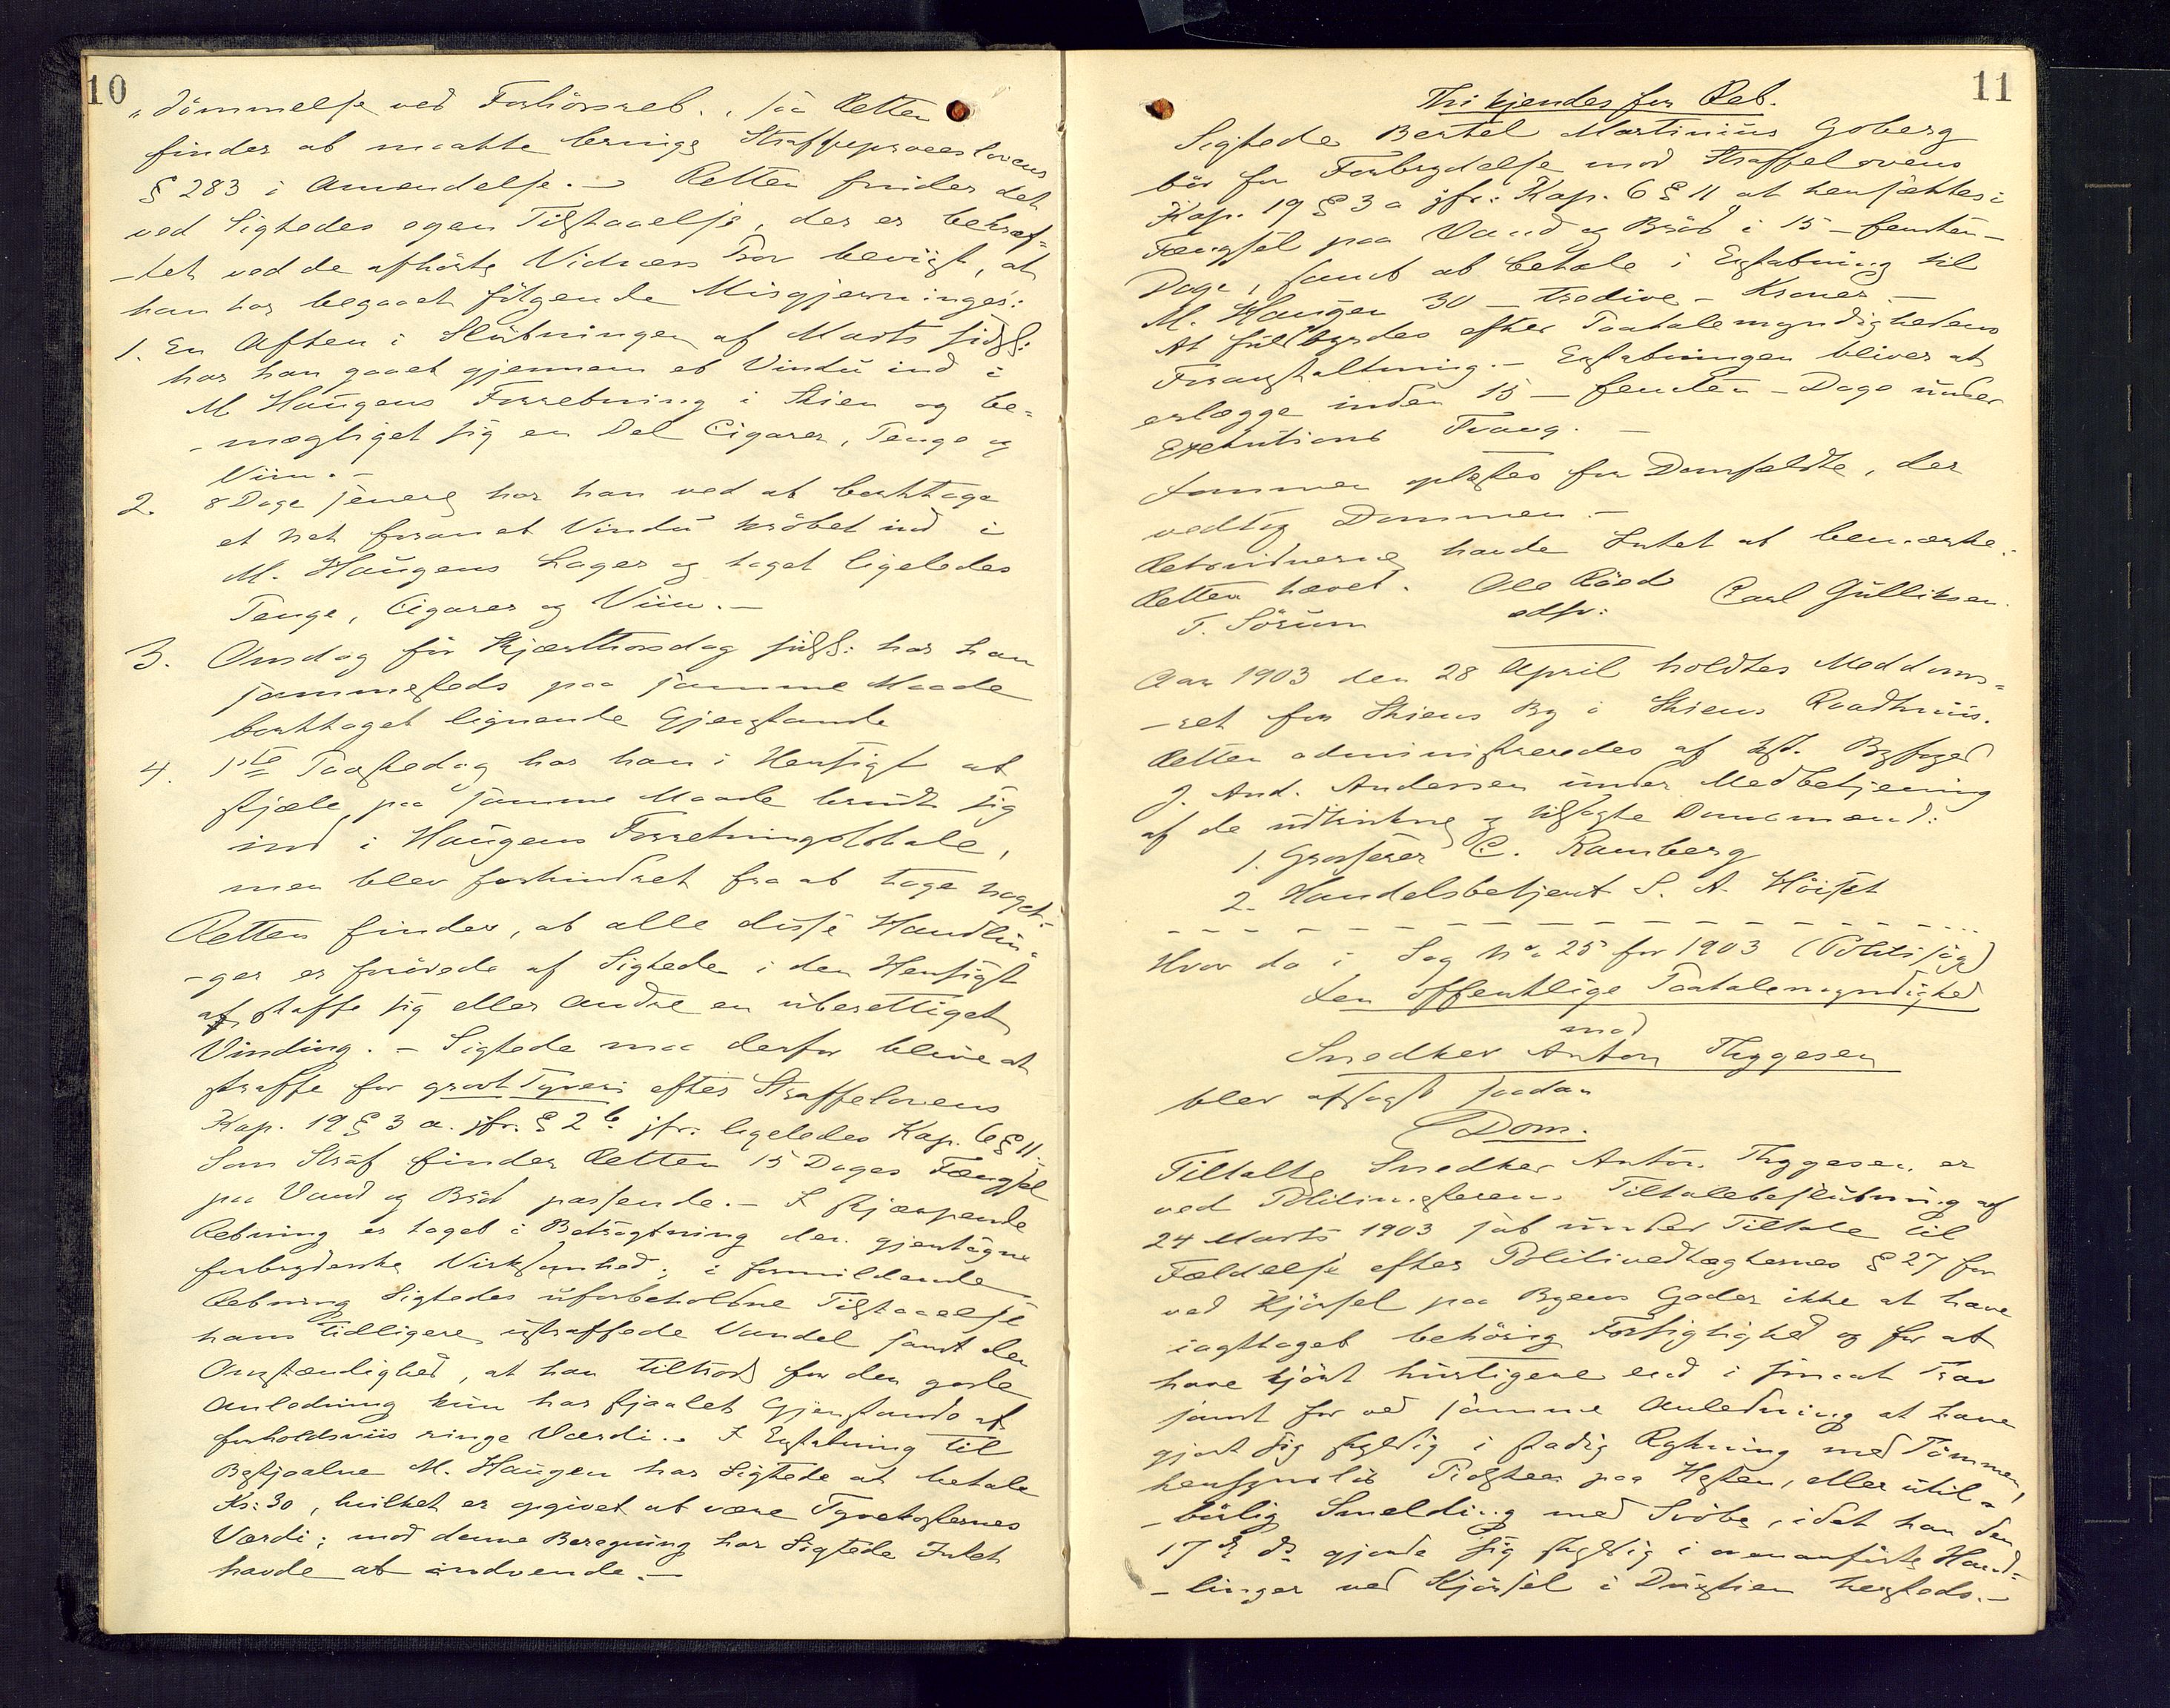 10
"dömmelse ved Forhörsret", saa Retten
finder at maatte bringe Straffeproceslovens
§ 283 i Anvendelse. – Retten finder det
ved Sigtedes egen Tilstaaelse, der er bekræf-
-tet ved de afhörte Vidners Prov bevist, at
han har begaaet fölgende Misgjerninger:
1. En Aften i Slutningen af Marts sidstl:
har han gaaet gjennem et Vindu ind i
M Haugens Forretning i Skien og be-
-mægtiget sig en Del Cigarer, Penge og
Viin. –
2. 8 Dage senere har han ved at borttage
et Net foran et Vindu kröbet ind i
M. Haugens Lager og taget ligeledes
Penge, Cigarer og Viin. –
3. Onsdag för Skjærthorsdag sidstl: har han
sammesteds paa samme Maade
borttaget lignende Gjenstande
4. 1ste Paaskedag har han i Hensigt at
stjæle, paa samme Maade brudt sig
ind i Haugens Forretningslokale,
men blev forhindret fra at tage noget. –
Retten finder, at alle disse Handlin-
-ger er forövede af Sigtede i den Hensigt
at skaffe sig eller andre en uberettiget
Vinding. – Sigtede maa derfor blive at
straffe for grovt Tyveri efter Straffelovens
Kap. 19 § 3 a. jfr. § 2 b jfr. ligeledes Kap. 6 § 11. –
Som Straf finder Retten 15 Dages Fængsel
paa Vand og Bröd passende. – I skjærpende
Retning er taget i Betragtning den gjentagne
forbryderske Virksomhed; i formildende
Retning Sigtedes uforbeholdne Tilstaaelse
hans tidligere ustraffede Vandel samt den
Omstændighed, at han tiltrods for den gode
Anledning kun har stjaalet Gjenstande af
forholdsviis ringe Værdi. – I Erstatning til
Bestjaalne M. Haugen har Sigtede at betale
Kr: 30, hvilket er opgivet at være Tyvekosternes
Værdi; mod denne Beregning har Sigtede Intet
havde at indvende. –
11
Thi kjendes for Ret.
Sigtede Bertel Martinius Goberg
bör for Forbrydelse mod Straffelovens
Kap. 19 § 3 a jfr: Kap. 6 § 11 at hensættes i
Fængsel paa Vand og Bröd i 15 – femten –
Dage, samt at betale i Erstatning til
M. Haugen 30 – tredive – Kroner. –
At fuldbyrdes efter Paatalemyndighedens
Foranstaltning. – Erstatningen bliver at
erlægge inden 15 – femten – Dage under
Exekutions Tvang. –
Dommen oplæstes for Domfældte, der
vedtog Dommen. –
Retsvidnerne havde Intet at bemærke.
Retten hævet. Ole Röed Carl Gulliksen.
T. Sörum edsv:
Aar 1903 den 28 April holdtes Meddoms-
-ret for Skiens By i Skiens Raadhuus.
Retten administreredes af kst. Byfoged
J. And. Andersen under Medbetjening
af de udtrukne og tilsagte Domsmænd:
1. Grosserer C. Ramberg
2. Handelsbetjent S. A. Höiset
Hvor da i Sag No 25 for 1903 (Politisag)
Den offentlige Paatalemyndighed
mod
Snedker Anton Thygesen
blev afsagt saadan
Dom.
Tiltalte Snedker Anton Thygesen er
ved Politimesterens Tiltalebeslutning af
24 Marts 1903 sat under Tiltale til
Fældelse efter Politivedtægternes § 27 for
ved Kjörsel paa Byens Gader ikke at have
iagttaget behörig Forsigtighed og for at
have kjört hurtigere end i smaat Trav
samt for ved samme Anledning at have
gjort sig skyldig i stadig Rykning med Tömmen,
hensynslös Pidsken paa Hesten, eller util-
-börlig Smelding med Svöbe, idet han den
17 ds gjorde sig skyldig i ovenanförte Hand-
-linger ved Kjörsel i hersteds. –